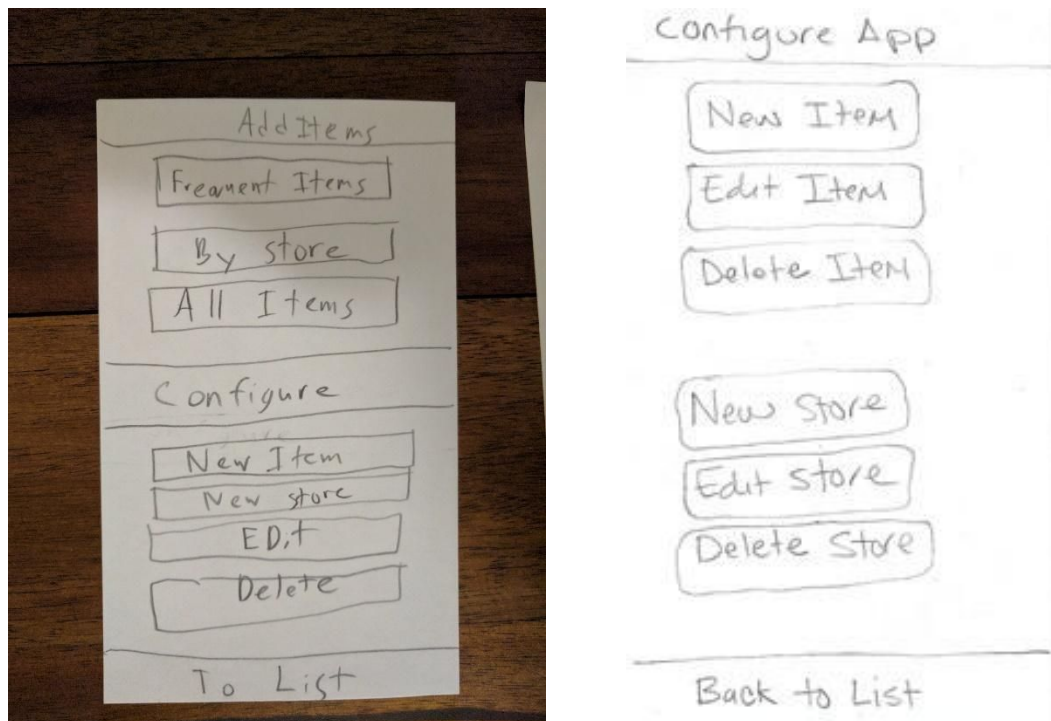 Add Items
Frequent Items
By store
All Items
Configure
New Item
New store
EDit
Delete
To List
Configure App
New Item
Edit Item
Delete Item
New Store
Edit Store
Delete Store
Back to List